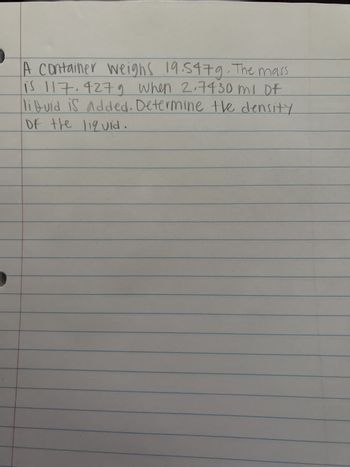 A container weighs 19.547g. The mass
is 117.427g when 2.7430 ml of
liquid is added. Determine the density
of the liquid.